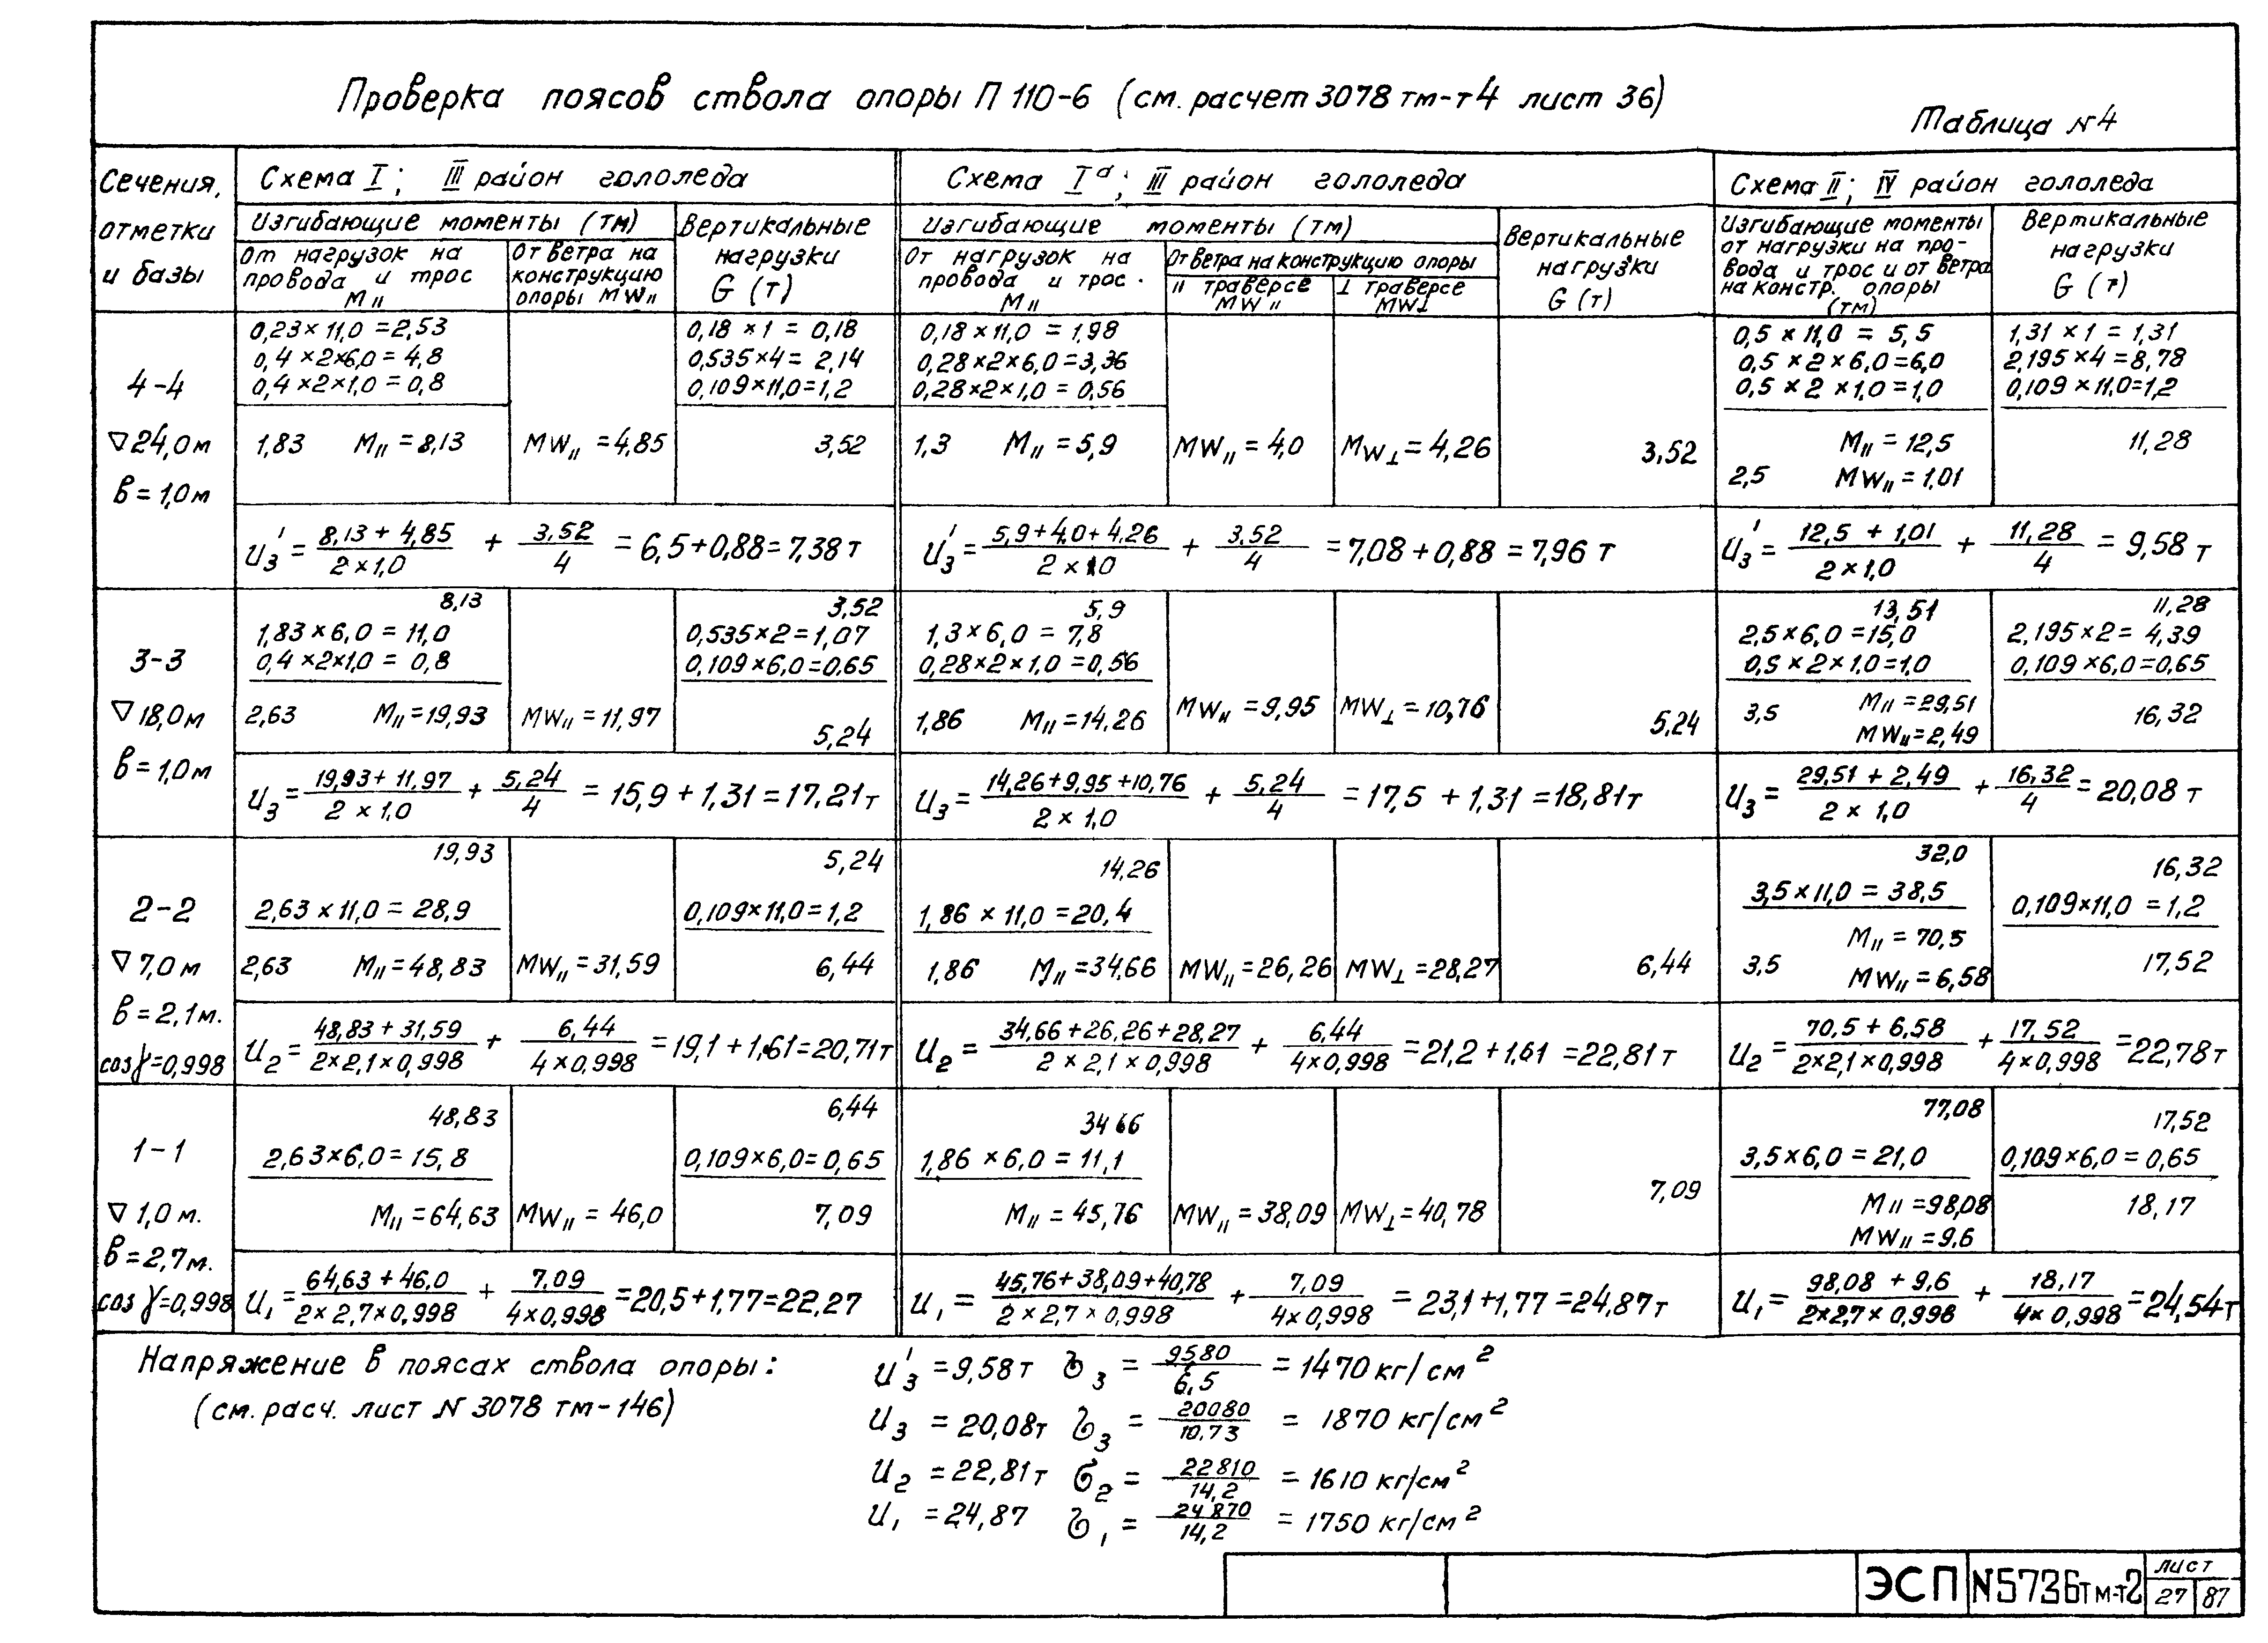 Проверка поясов ствола опоры П 110-6 (см. расчет 3078 тм-т4 лист 36)
Таблица №4
Сечения, отметки и базы
Схема I; III район гололеда
Схема Iа; III район гололеда
Схема II; IV район гололеда
Изгибающие моменты (тм)
Вертикальные нагрузки G (т)
От нагрузок на провода и трос M||
От ветра на конструкцию опоры MW||
Изгибающие моменты (тм)
Вертикальные нагрузки G (т)
От нагрузок на провода и трос. M||
От ветра на конструкцию опоры
|| траверсе MW||
⊥ траверсе MW⊥
Изгибающие моменты от нагрузки на провода и трос и от ветра на констр. опоры (тм)
Вертикальные нагрузки G (т)
4-4
▽24,0м
в=1,0м
0,23×11,0=2,53
0,4×2×6,0=4,8
0,4×2×1,0=0,8
1,83 M||=8,13
MW||=4,85
0,18×1=0,18
0,535×4=2,14
0,109×11,0=1,2
3,52
0,18×11,0=1,98
0,28×2×6,0=3,36
0,28×2×1,0=0,56
1,3 M||=5,9
MW||=4,0
MW⊥=4,26
3,52
0,5×11,0=5,5
0,5×2×6,0=6,0
0,5×2×1,0=1,0
M||=12,5
2,5 MW||=1,01
1,31×1=1,31
2,195×4=8,78
0,109×11,0=1,2
11,28
U₃'= (8,13+4,85)/(2×1,0) + 3,52/4 =6,5+0,88=7,38т
U₃'= (5,9+4,0+4,26)/(2×1,0) + 3,52/4 =7,08+0,88=7,96 т
U₃'= (12,5+1,01)/(2×1,0) + 11,28/4 =9,58т
3-3
▽18,0м
в=1,0м
8,13
1,83×6,0=11,0
0,4×2×1,0=0,8
2,63 M||=19,93
MW||=11,97
3,52
0,535×2=1,07
0,109×6,0=0,65
5,24
5,9
1,3×6,0=7,8
0,28×2×1,0=0,56
1,86 M||=14,26
MW||=9,95
MW⊥=10,76
5,24
13,51
2,5×6,0=15,0
0,5×2×1,0=1,0
M||=29,51
3,5 MW||=2,49
11,28
2,195×2=4,39
0,109×6,0=0,65
16,32
U₃= (19,93+11,97)/(2×1,0) + 5,24/4 =15,9+1,31=17,21т
U₃= (14,26+9,95+10,76)/(2×1,0) + 5,24/4 =17,5+1,31=18,81т
U₃= (29,51+2,49)/(2×1,0) + 16,32/4 =20,08 т
2-2
▽7,0м
в=2,1м.
cosγ=0,998
19,93
2,63×11,0=28,9
2,63 M||=48,83
MW||=31,59
5,24
0,109×11,0=1,2
6,44
14,26
1,86×11,0=20,4
1,86 M||=34,66
MW||=26,26
MW⊥=28,27
6,44
32,0
3,5×11,0=38,5
M||=70,5
3,5 MW||=6,58
16,32
0,109×11,0=1,2
17,52
U₂= (48,83+31,59)/(2×2,1×0,998) + 6,44/(4×0,998) =19,1+1,61=20,71т
U₂= (34,66+26,26+28,27)/(2×2,1×0,998) + 6,44/(4×0,998) =21,2+1,61=22,81т
U₂= (70,5+6,58)/(2×2,1×0,998) + 17,52/(4×0,998) =22,78т
1-1
▽1,0м.
в=2,7м.
cosγ=0,998
48,83
2,63×6,0=15,8
M||=64,63
MW||=46,0
6,44
0,109×6,0=0,65
7,09
34 66
1,86×6,0=11,1
M||=45,76
MW||=38,09
MW⊥=40,78
7,09
77,08
3,5×6,0=21,0
M||=98,08
MW||=9,6
17,52
0,109×6,0=0,65
18,17
U₁= (64,63+46,0)/(2×2,7×0,998) + 7,09/(4×0,998) =20,5+1,77=22,27
U₁= (45,76+38,09+40,78)/(2×2,7×0,998) + 7,09/(4×0,998) =23,1+1,77=24,87т
U₁= (98,08+9,6)/(2×2,7×0,998) + 18,17/(4×0,998) =24,54т
Напряжение в поясах ствола опоры:
(см. расч. лист N 3078 тм-146)
U₃'=9,58т σ₃= 9580/6,5 =1470 кг/см²
U₃=20,08т σ₃= 20080/10,73 = 1870 кг/см²
U₂=22,81т σ₂= 22810/14,2 =1610 кг/см²
U₁=24,87 σ₁= 24870/14,2 =1750 кг/см²
ЭСП N5736тм-т2 лист 27 87